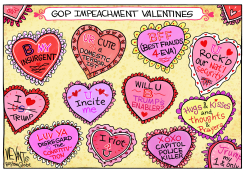 GOP IMPEACHMENT VALENTINES
B MY
INSURGENT
UR CUTE
DOMESTIC
BFF
(BEST FRIENDS
4-EVA)
U
ROCK'D
our
Security
TRUMP
U
Incite
me
WILL U
B
TRUMP'S
ENABLER
Hugs & Kisses
and
thoughts
&
Prayers
LUV YA
DISREGARD
the
CONSTITUTION
I riot
U
XOXO
CAPITOL
POLICE
KILLER
TRUMP
my
1 & only